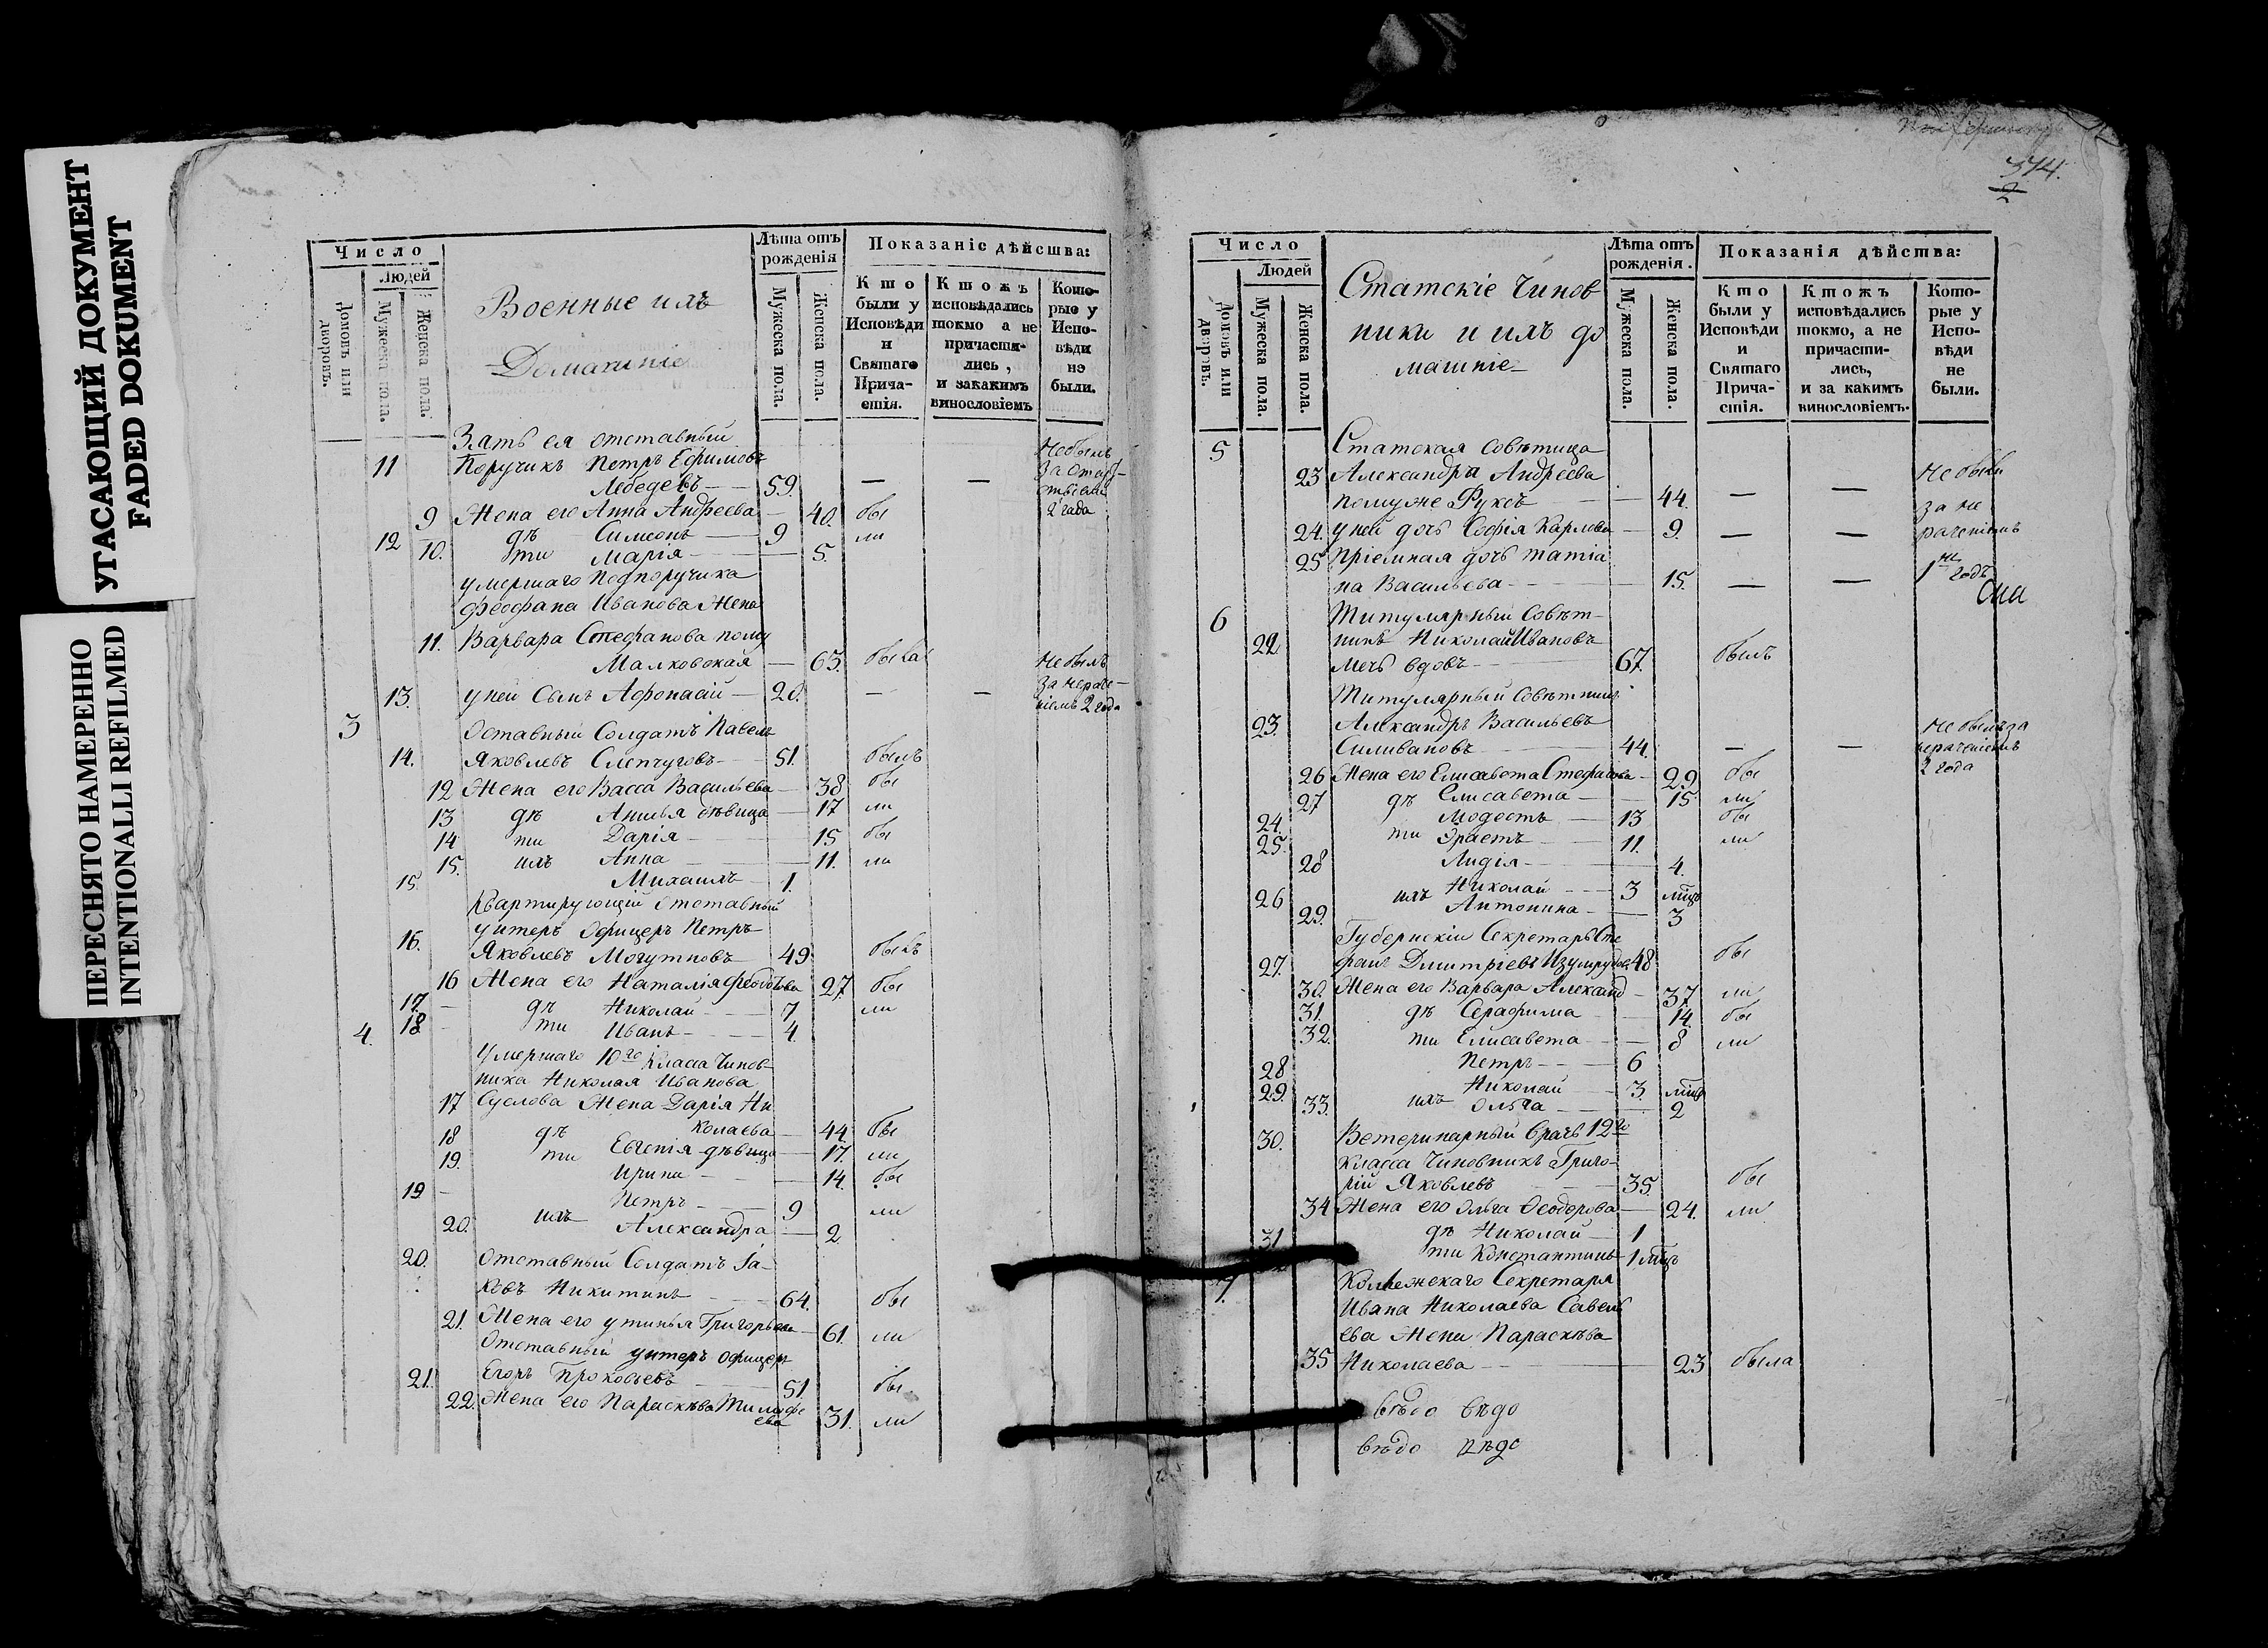 УГАСАЮЩИЙ ДОКУМЕНТ
FADED DOKUMENT
ПЕРЕСНЯТО НАМЕРЕННО
INTENTIONALLI REFILMED
Число
Людей
Домовъ или дворовъ.
Мужеска пола.
Женска пола.
Военные ихъ
Домашніе
Лѣта отъ рожденія
Мужеска пола.
Женска пола.
Показаніе дѣйства:
Кто были у Исповѣди и Святаго Причастія.
Ктожъ исповѣдались токмо а не причастились, и закакимъ винословіемъ
Которые у Исповѣди не были.
Зять ея отставный
11 Поручикъ Петръ Ефимовъ
Лебедевъ 59. — — Небылъ за отлуч- 2 года
9 Жена его Анна Андреева 40. бы
12 дѣ Симеонъ 9 ли
10. ти Марія 5.
умершаго Подпоручика
Феофана Иванова Жена
11. Варвара Стефанова пому
Малковская 63. была
13. у ней Сынъ Афонасій 20. — — Небылъ за нераченіемъ 2 года
3 Оставный Солдатъ Павелъ
14. Яковлевъ Слепчуговъ 51. былъ
12 Жена его Васса Васильева 38 бы
13 дѣ Анисья дѣвица 17 ли
14 ти Дарія 15 бы
15. ихъ Анна 11. ли
15. Михаилъ 1.
Квартирующій отставный
унтеръ Офицеръ Петръ
16. Яковлевъ Могутновъ 49 былъ
16 Жена его Наталія Федотова 27 бы
17. дѣ Николай 7 ли
4. 18 ти Иванъ 4
Умершаго 10го Класса Чинов-
ника Николая Иванова
17 Суслова Жена Дарія Ни
колаева 44. бы
18 дѣ Евгенія дѣвица 17. ли
19. ти Ирина 14. бы
19 Петръ 9 ли
20. ихъ Александра 2
20. Отставный Солдатъ Іа-
ковъ Никитинъ 64. бы
21. Жена его Устинья Григорьева 61. ли
Отставный унтеръ Офицеръ
21. Егоръ Прокофьевъ 51. бы
22. Жена его Параскѣва Тимофе
ева 31. ли
374.
2
Число
Людей
Домовъ или дворовъ.
Мужеска пола.
Женска пола.
Статскіе Чинов
ники и ихъ до
машніе
Лѣта отъ рожденія.
Мужеска пола.
Женска пола.
Показанія дѣйства:
Кто были у Исповѣди и Святаго Причастія.
Ктожъ исповѣдались токмо, а не причастились, и за какимъ винословіемъ.
Которые у Исповѣди не были.
5 Статская Совѣтница
23 Александра Андреева
помуже Фуксъ 44. — — не были
24. у ней дочь Софія Карлова 9. — — за нераченіемъ
25 Пріемная дочь Татіа
на Васильева 15. — — 1й годъ
6 Титулярный Совѣт-
22 никъ Николай Ивановъ
Мечь вдовъ 67. былъ
Титулярный Совѣтникъ
23. Александръ Васильевъ
Силивановъ 44. — — не былъ за нераченіемъ 2 года
26 Жена его Елисавета Стефанова 29. бы
27 дѣ Елисавета 15 ли
24. Модестъ 13 бы
25. ти Эрастъ 11. ли
28 Лидія 4.
26 ихъ Николай 3 мѣц
29. Антонина 3
Губернскій Секретарь Сте
27. фанъ Димитріевъ Изумрудовъ 48 бы
30. Жена его Варвара Александ 37 ли
31. дѣ Серафима 14. бы
32. ти Елисавета 8 ли
28 Петръ 6
29. Николай 3. мѣц
33. ихъ Ольга 2
30. Ветеринарный врачь 12го
Класса Чиновникъ Григо-
рій Яковлевъ 35. бы
34 Жена его Ольга Ѳеодорова 24. ли
31 дѣ Николай 1
ти Константинъ 1 мѣц
7. Коллежскаго Секретаря
Ивана Николаева Савель
ева Жена Параскѣва
35 Николаева 23 была